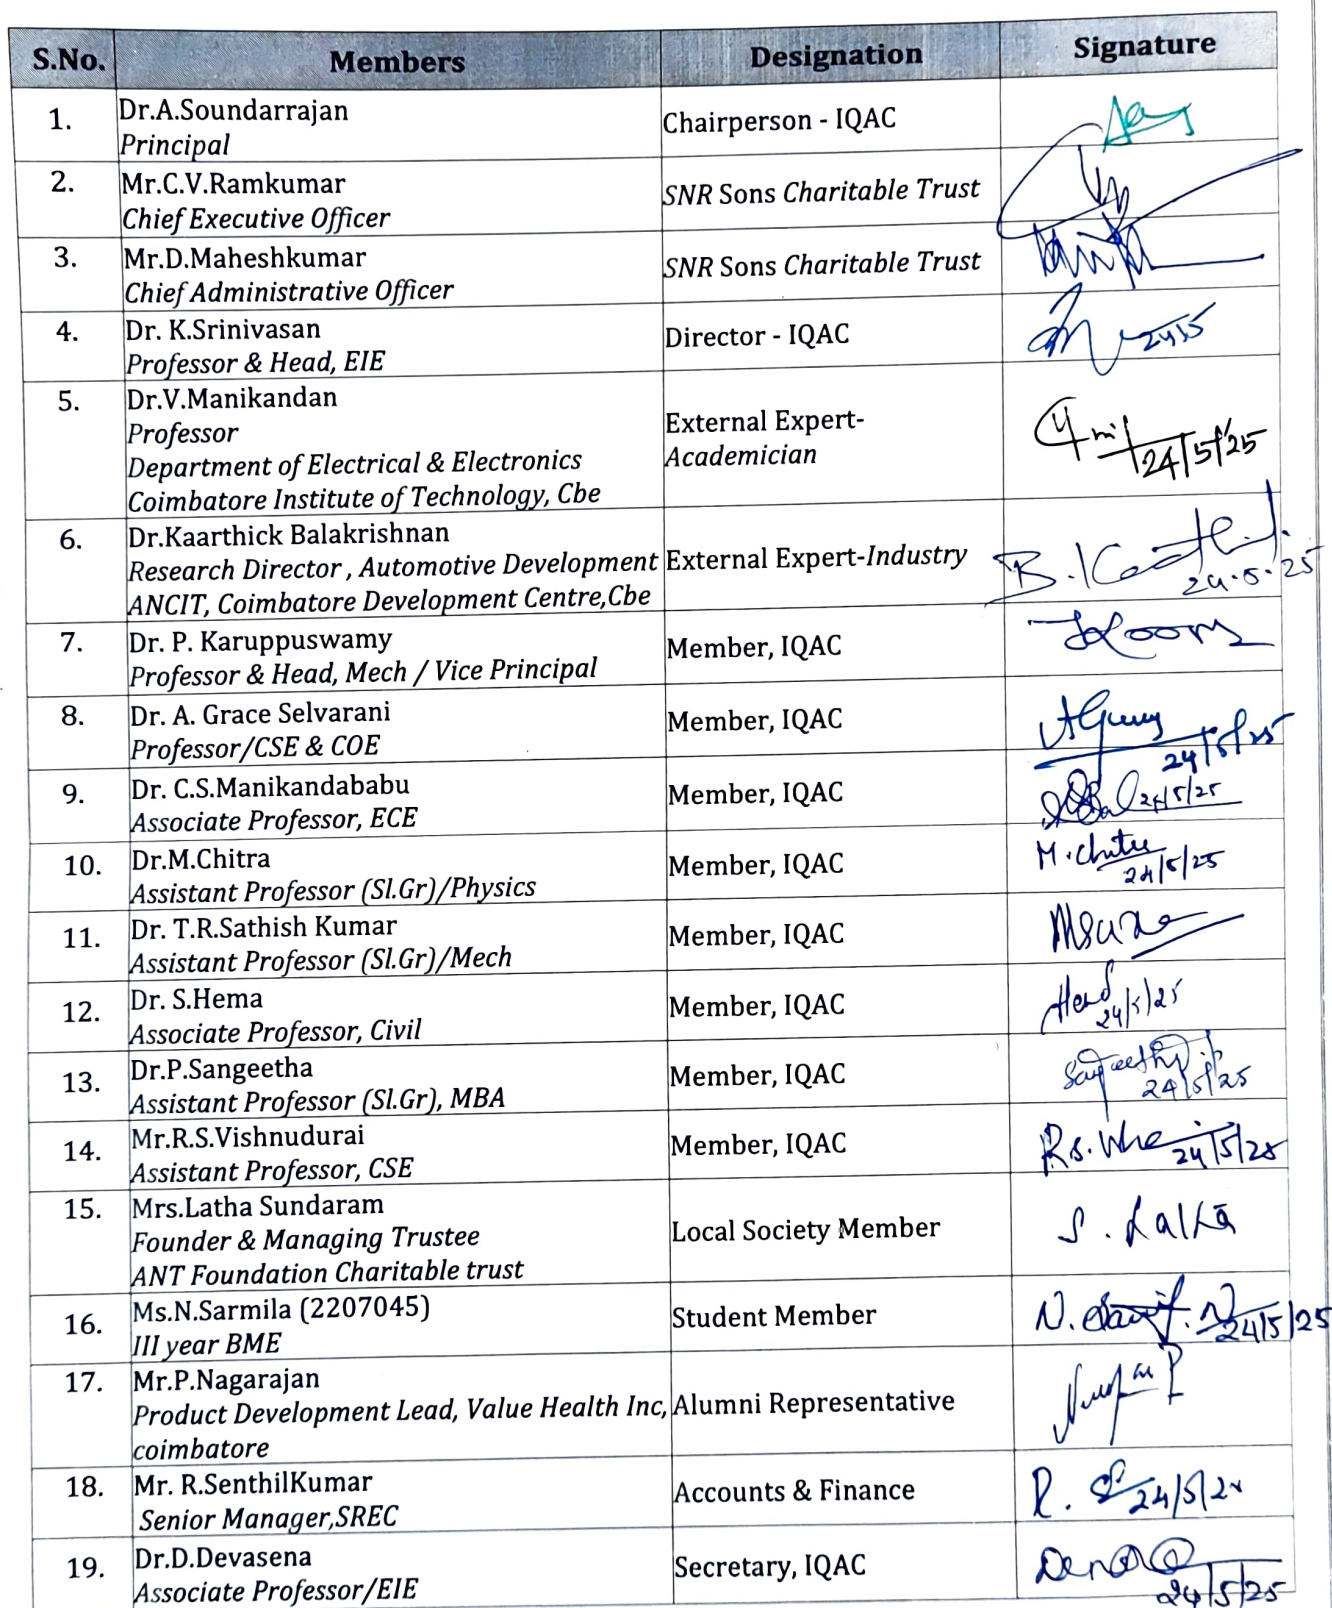 S.No. Members Designation Signature
1. Dr.A.Soundarrajan
Principal
Chairperson - IQAC
2. Mr.C.V.Ramkumar
Chief Executive Officer
SNR Sons Charitable Trust
3. Mr.D.Maheshkumar
Chief Administrative Officer
SNR Sons Charitable Trust
4. Dr. K.Srinivasan
Professor & Head, EIE
Director - IQAC
24/5
5. Dr.V.Manikandan
Professor
Department of Electrical & Electronics
Coimbatore Institute of Technology, Cbe
External Expert-
Academician
24/5/25
6. Dr.Kaarthick Balakrishnan
Research Director, Automotive Development
ANCIT, Coimbatore Development Centre,Cbe
External Expert-Industry
24.5.25
7. Dr. P. Karuppuswamy
Professor & Head, Mech / Vice Principal
Member, IQAC
8. Dr. A. Grace Selvarani
Professor/CSE & COE
Member, IQAC
24/5/25
9. Dr. C.S.Manikandababu
Associate Professor, ECE
Member, IQAC
24/5/25
10. Dr.M.Chitra
Assistant Professor (Sl.Gr)/Physics
Member, IQAC
M.Chitra
24/5/25
11. Dr. T.R.Sathish Kumar
Assistant Professor (Sl.Gr)/Mech
Member, IQAC
12. Dr. S.Hema
Associate Professor, Civil
Member, IQAC
24/5/25
13. Dr.P.Sangeetha
Assistant Professor (Sl.Gr), MBA
Member, IQAC
24/5/25
14. Mr.R.S.Vishnudurai
Assistant Professor, CSE
Member, IQAC
24/5/25
15. Mrs.Latha Sundaram
Founder & Managing Trustee
ANT Foundation Charitable trust
Local Society Member
S. Latha
16. Ms.N.Sarmila (2207045)
III year BME
Student Member
24/5/25
17. Mr.P.Nagarajan
Product Development Lead, Value Health Inc,
coimbatore
Alumni Representative
18. Mr. R.SenthilKumar
Senior Manager,SREC
Accounts & Finance
24/5/25
19. Dr.D.Devasena
Associate Professor/EIE
Secretary, IQAC
24/5/25